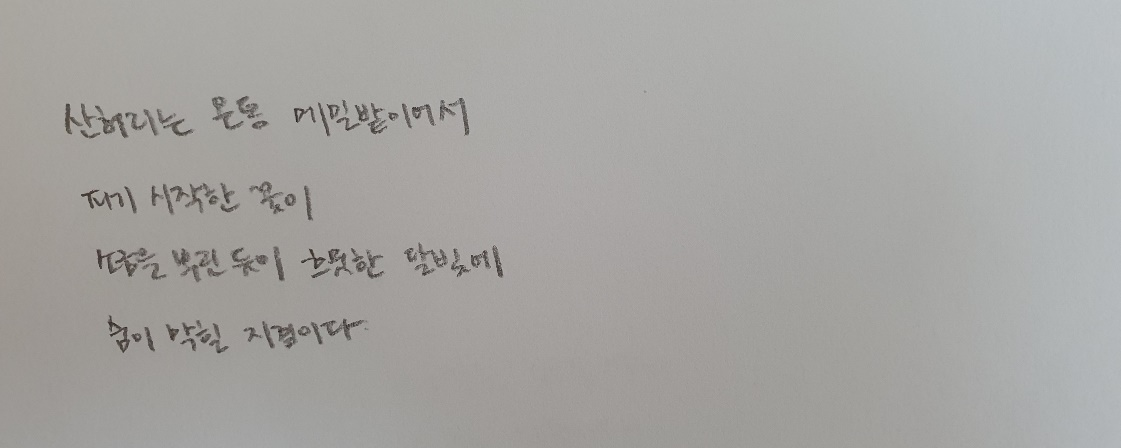 산허리는 온통 메밀밭이어서
피기 시작한 꽃이
소금을 뿌린 듯이 흐뭇한 달빛에
숨이 막힐 지경이다.